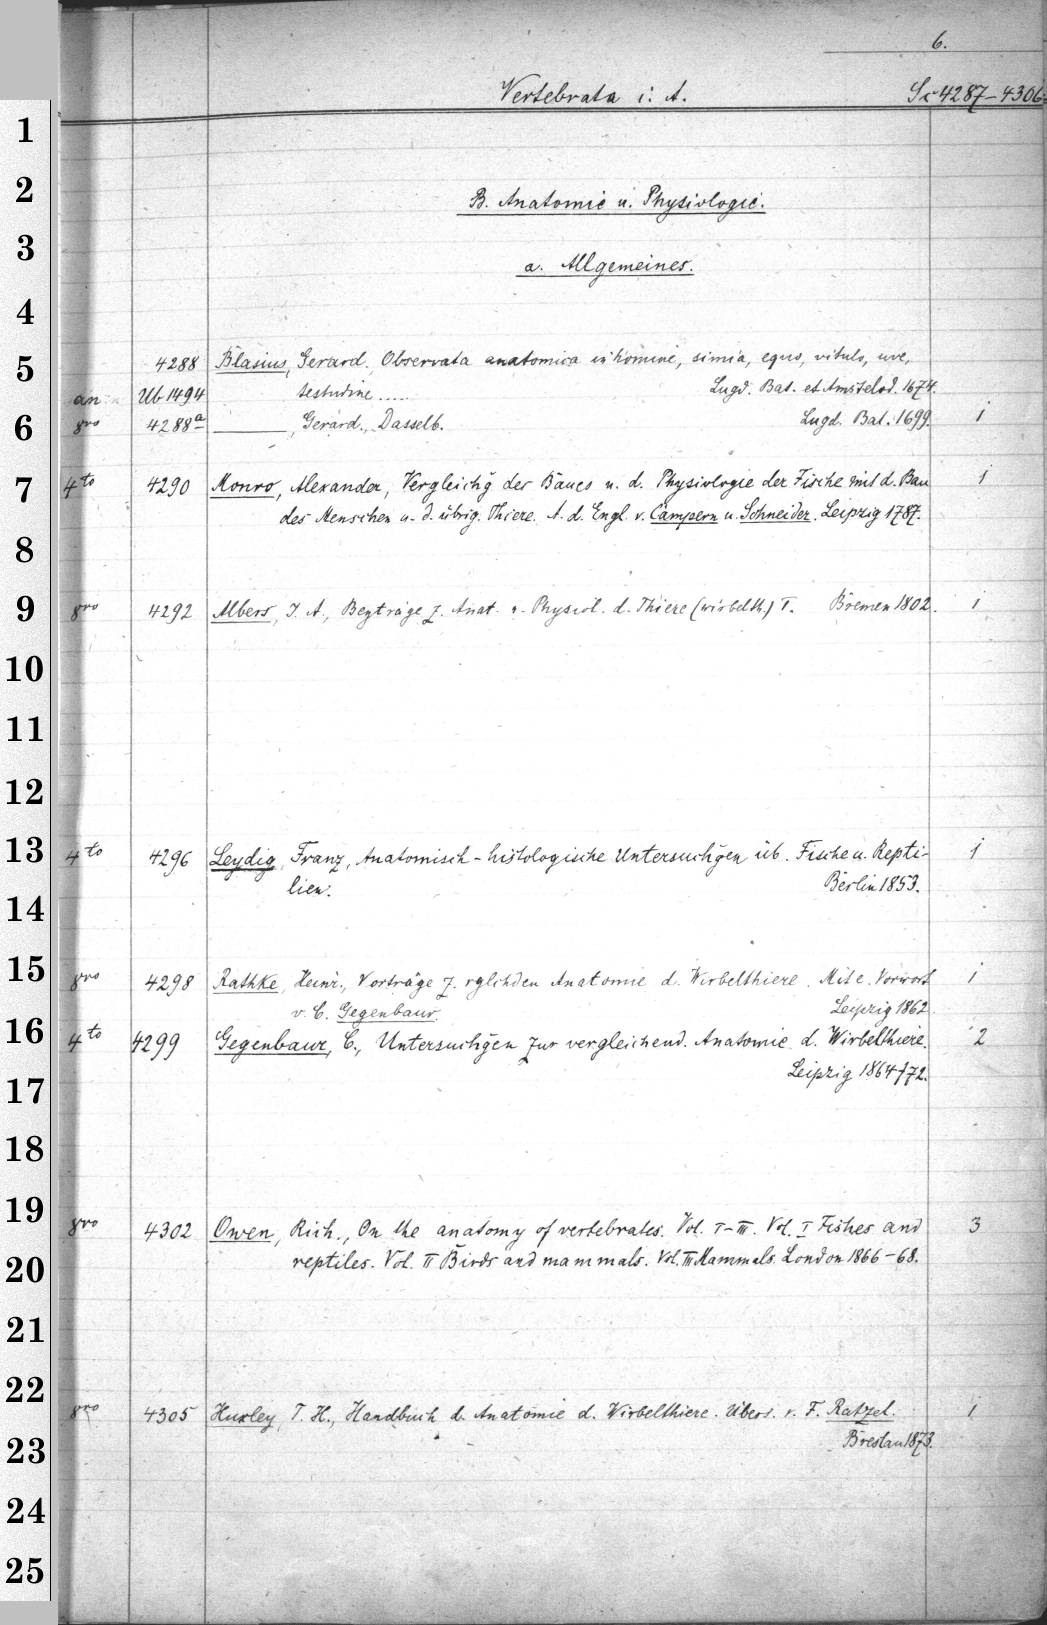 6.
Vertebrata i. A. Sc 4287–4306
1
2 B. Anatomie u. Physiologie.
3 a. Allgemeines.
4
5 4288 Blasius, Gerard. Observata anatomica in homine, simia, equo, vitulo, ove,
an Ub 1494 testudine ..... Lugd. Bat. et Amstelod. 1674.
6 8vo 4288a ———, Gerard., Dasselb. Lugd. Bat. 1699. 1
7 4to 4290 Monro, Alexander, Vergleichg̅ des Baues u. d. Physiologie der Fische mit d. Bau 1
des Menschen u. d. übrig. Thiere. A. d. Engl. v. Campern u. Schneider. Leipzig 1787.
8
9 8vo 4292 Albers, J. A., Beyträge z. Anat. u. Physiol. d. Thiere (wirbelth.) I. Bremen 1802. 1
10
11
12
13 4to 4296 Leydig, Franz, Anatomisch-histologische Untersuchg̅en üb. Fische u. Repti- 1
lien. Berlin 1853.
14
15 8vo 4298 Rathke, Heinr., Vorträge z. vglchden Anatomie d. Wirbelthiere. Mit e. Vorwort 1
v. C. Gegenbaur. Leipzig 1862.
16 4to 4299 Gegenbaur, C., Untersuchg̅en zur vergleichend. Anatomie d. Wirbelthiere. 2
Leipzig 1864/72.
17
18
19 8vo 4302 Owen, Rich., On the anatomy of vertebrates. Vol. I–III. Vol. I Fishes and 3
20 reptiles. Vol. II Birds and mammals. Vol. III Mammals. London 1866–68.
21
22 8vo 4305 Huxley, T. H., Handbuch d. Anatomie d. Wirbelthiere. Übers. v. F. Ratzel. 1
23 Breslau 1873.
24
25